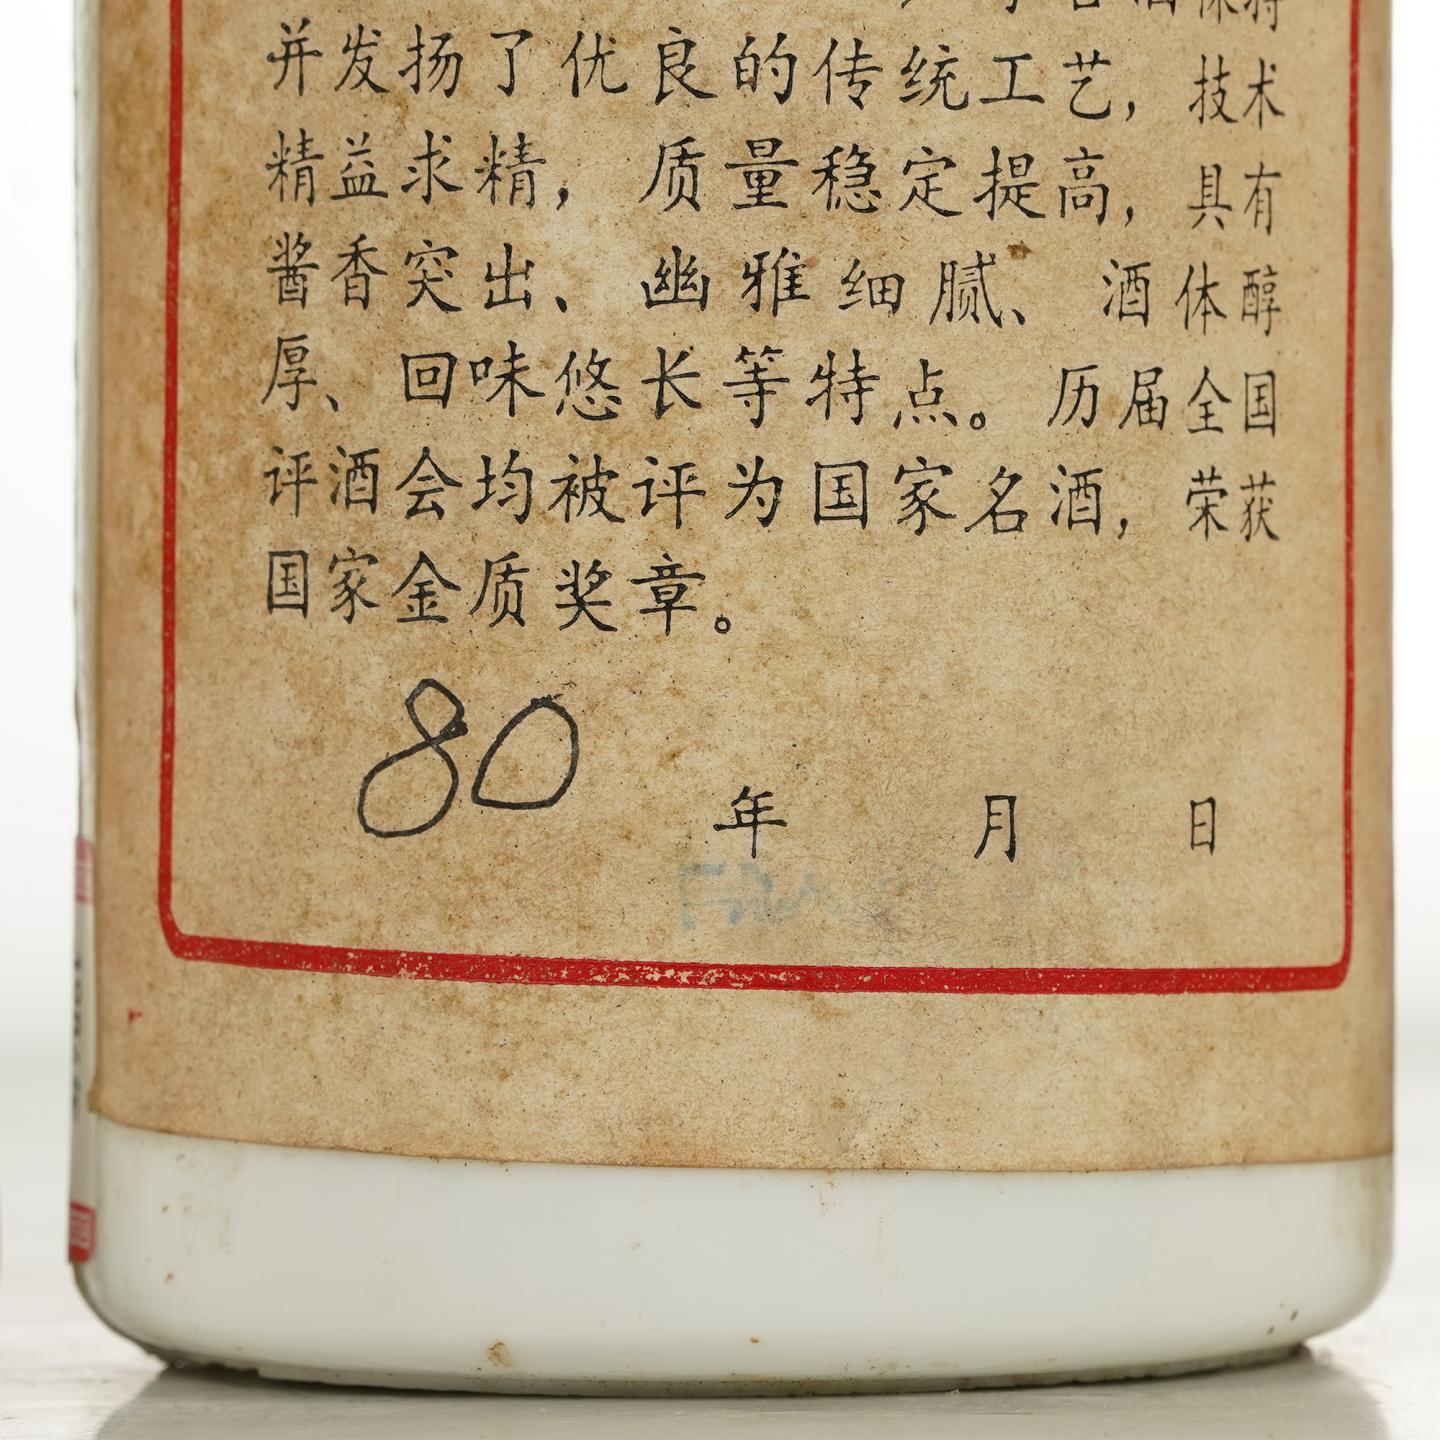 并发扬了优良的传统工艺，技术
精益求精，质量稳定提高，具有
酱香突出、幽雅细腻、酒体醇
厚、回味悠长等特点。历届全国
评酒会均被评为国家名酒，荣获
国家金质奖章。
80
年 月 日